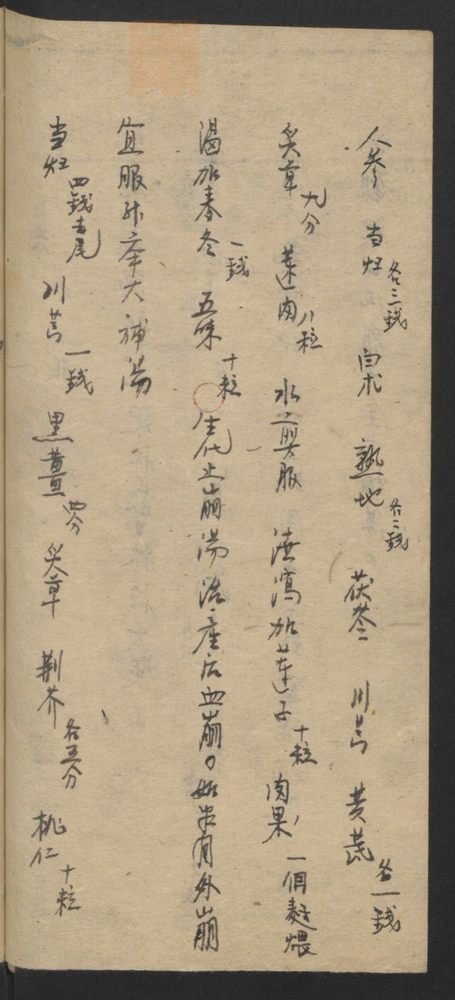 人參 当归各三錢 白朮 熟地各二錢 茯苓 川芎 黄芪各一錢
炙草九分 莲肉八粒 水煎服 泄瀉加莲子十粒 肉果一個麪煨
渴加麦冬一錢 五味十粒 生化止崩湯治産后血崩。如出月外崩
宜服升举大補湯
当归四錢去尾 川芎一錢 黒薑四分 炙草 荆芥各五分 桃仁十粒